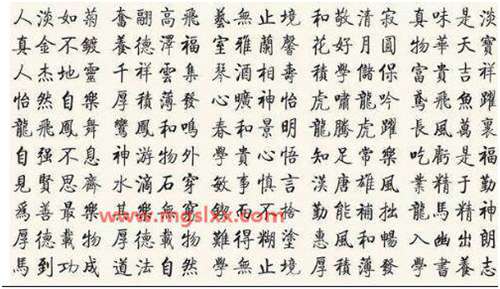 人淡如菊 奮翮高飛 藝無止境 和敬清寂 真味是淡
真金不鍍 養德澤福 室雅蘭馨 花好月圓 物華天寶
人杰地靈 千祥雲集 琴 相壽 積學儲 富貴吉祥
怡然自樂 厚積薄發 曠神怡 虎嘯龍吟 鳶飛魚躍
龍飛鳳舞 鸞鳳和鳴 春和景明 龍騰虎躍 長風萬裏
自强不息 神游物外 學貴心悟 知足常樂 吃虧是福
見賢思齊 水滴石穿 敏事慎言 漢唐雄風 業精於勤
爲善最樂 其 無 鍥而不捨 勤能補拙 龍馬精神
厚德載物 厚德載物 難得糊塗 惠風和暢 入幽出朗
馬到功成 道法自然 學無止境 厚積薄發 學書養志
www.mgslxx.com